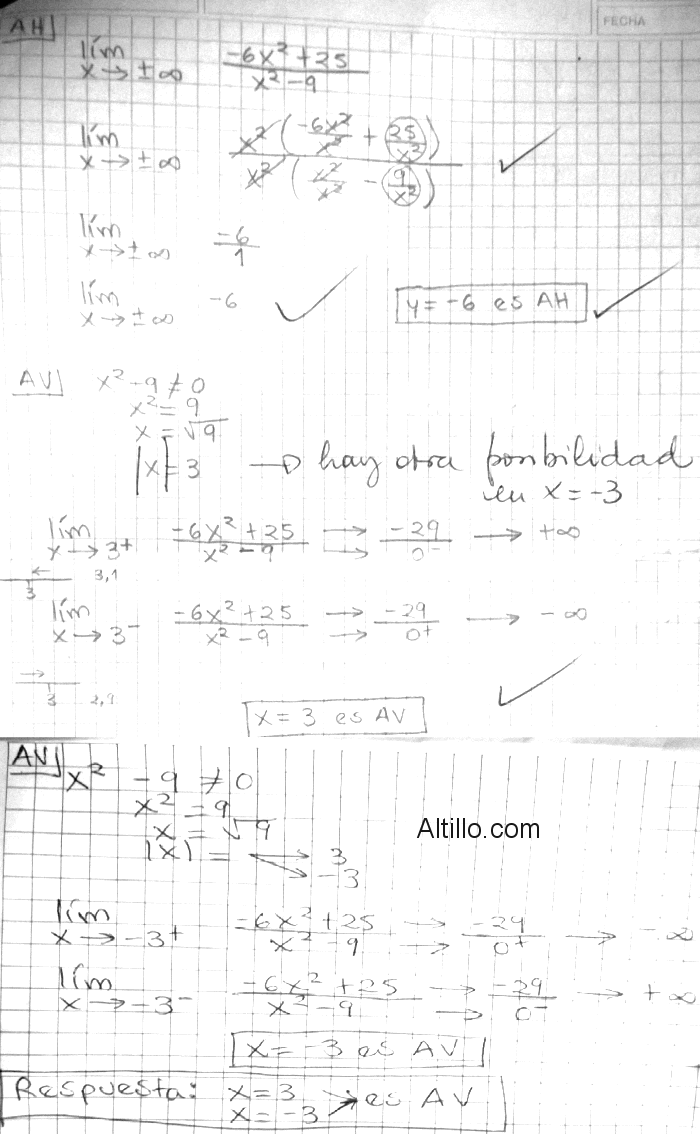 AH
FECHA
lím x→±∞ (-6x²+25)/(x²-9)
lím x→±∞ x²(-6x²/x² + 25/x²) / x²(x²/x² - 9/x²)
lím x→±∞ -6/1
lím x→±∞ -6
y=-6 es AH
AV x²-9≠0
x²=9
x=√9
|x|=3 → hay otra posibilidad
en x=-3
lím x→3⁺ (-6x²+25)/(x²-9) → -29/0⁻ → +∞
3 3,1
lím x→3⁻ (-6x²+25)/(x²-9) → -29/0⁺ → -∞
3 2,9
x=3 es AV
AV x²-9≠0
x²=9
x=√9
|x|= → 3
→ -3
Altillo.com
lím x→-3⁺ (-6x²+25)/(x²-9) → -29/0⁺ → -∞
lím x→-3⁻ (-6x²+25)/(x²-9) → -29/0⁻ → +∞
x=-3 es AV
Respuesta: x=3
x=-3 → es AV